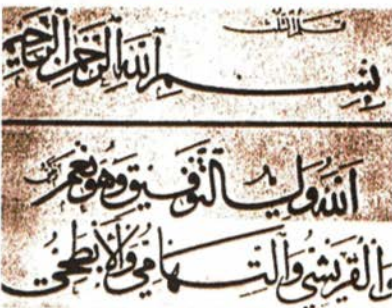 قلم الثلث
بسم الله الرحمن الرحيم
الله ولي التوفيق وهو نعم
القرشي والتهامي والأبطحي